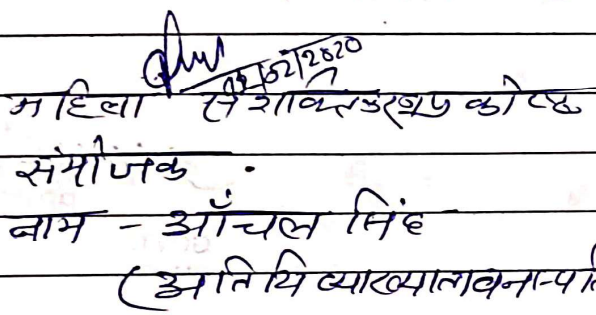 02/2020
महिला सशक्तिकरण कोष्ठ
संयोजक .
नाम - आँचल सिंह
(अतिथि व्याख्याता